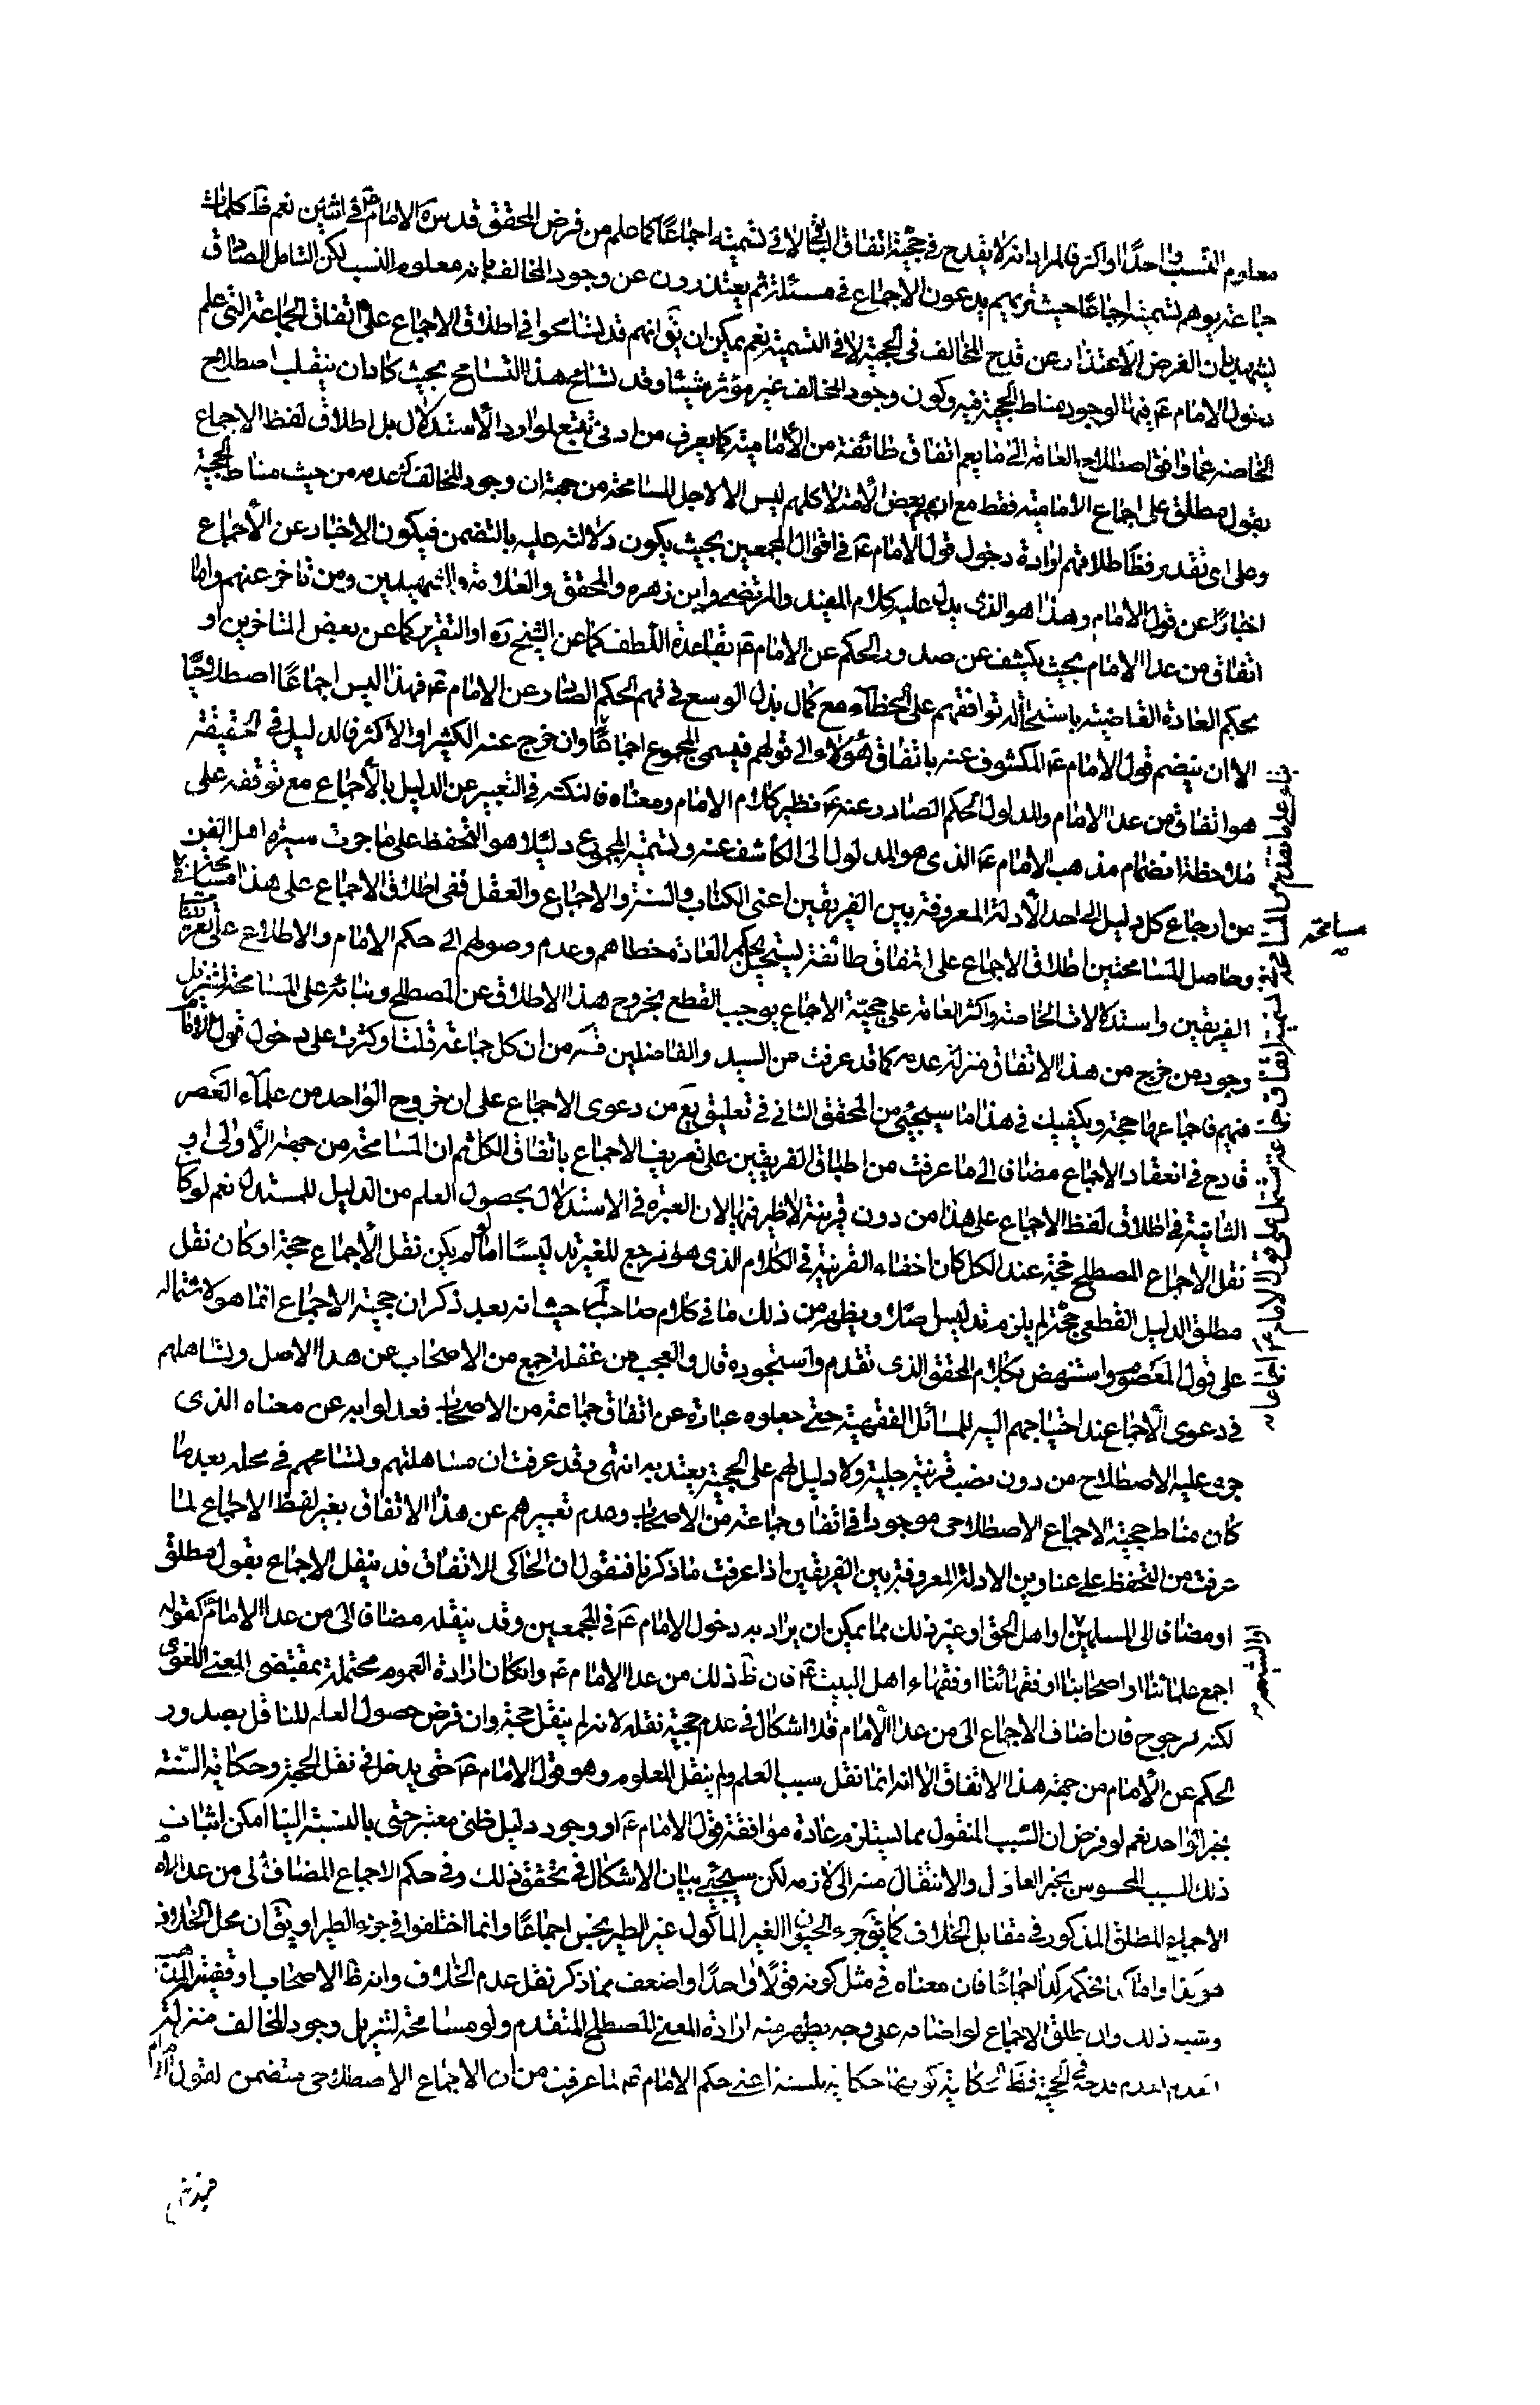 معلوم النسب واحدًا او اكثر فالمراد انه لا يقدح في حجية اتفاق الباقي لا في تسميته اجماعًا كما علم من فرض المحقق قدس سره الامام ع في اثنين نعم ظ كلمات
جماعة يوهم تسميته اجماعًا حيث تريهم يدعون الاجماع في مسئلة ثم يعتذرون عن وجود المخالف بانه معلوم النسب لكن التامل الصادق
يشهد بان الغرض الاعتذار عن قدح المخالف في الحجية لا في التسمية نعم يمكن ان يق انهم قد تسامحوا في اطلاق الاجماع على اتفاق الجماعة التي علم
دخول الامام ع فيها لوجود مناط الحجية فيه وكون وجود المخالف غير مؤثر شيئا وقد تسامح هذا التسامح بحيث كاد ان ينقلب اصطلاح
الخاصة عما وافق اصطلاح العامة الى ما يعم اتفاق طائفة من الامامية كما يعرف من ادنى تتبع لموارد الاستدلال بل اطلاق لفظ الاجماع
بقول مطلق على اجماع الامامية فقط مع انهم بعض الامة لا كلهم ليس الا لاجل المسامحة من جهة ان وجود المخالف كعدمه من حيث مناط الحجية
وعلى اى تقدير فظ اطلاقهم ارادة دخول قول الامام ع في اقوال المجمعين بحيث يكون دلالته عليه بالتضمن فيكون الاخبار عن الاجماع
اخبارًا عن قول الامام وهذا هو الذى يدل عليه كلام المفيد والمرتضى وابن زهره والمحقق والعلامة والشهيدين ومن تاخر عنهم واما
اتفاق من عدا الامام بحيث يكشف عن صدور الحكم عن الامام ع بقاعدة اللطف كما عن الشيخ ره او التقرير كما عن بعض المتاخرين او
بحكم العادة القاضية باستحالة توافقهم على الخطاء مع كمال بذل الوسع في فهم الحكم الصادر عن الامام ع فهذا ليس اجماعًا اصطلاحيًا
الا ان ينضم قول الامام ع المكشوف عنه باتفاق هؤلاء الى قولهم فيسمى المجموع اجماعًا وان خرج عنه الكثير او الاكثر فالدليل في الحقيقة
هو اتفاق من عدا الامام والمدلول الحكم الصادر عنه ع نظير كلام الامام ومعناه فالنكتة في التعبير عن الدليل بالاجماع مع توقفه على
ملاحظة انضمام مذهب الامام ع الذى هو المدلول الى الكاشف عنه وتسمية المجموع دليلا هو التحفظ على ما جرت سيرة اهل الفن
من ارجاع كل دليل الى احد الادلة المعروفة بين الفريقين اعنى الكتاب والسنة والاجماع والعقل ففى اطلاق الاجماع على هذا مسامحة في
وحاصل المسامحتين اطلاق الاجماع على اتفاق طائفة يستحيل بحكم العادة خطاهم وعدم وصولهم الى حكم الامام والاطلاع على تعريف
الفريقين واستدلالات الخاصة واكثر العامة على حجية الاجماع يوجب القطع بخروج هذا الاطلاق عن المصطلح وبنائه على المسامحة لتنزيل
وجود من خرج من هذا الاتفاق منزلة عدمه كما قد عرفت من السيد والفاضلين قدس سرهم من ان كل جماعة قلت او كثرت على دخول قول الامام
فيهم فاجماعها حجة ويكفيك في هذا ما سيجئ من المحقق الثانى في تعليق يع من دعوى الاجماع على ان خروج الواحد من علماء العصر
قادح في انعقاد الاجماع مضافا الى ما عرفت من اطباق الفريقين على تعريف الاجماع باتفاق الكل ثم ان المسامحة من جهة الاولى او
الثانية في اطلاق لفظ الاجماع على هذا من دون قرينة لا ظير فيها لان العبرة في الاستدلال بحصول العلم من الدليل للمستدل نعم لو كان
نقل الاجماع المصطلح حجة عند الكل كان اخفاء القرينة في الكلام الذى هو مرجع للغير تدليسًا اما لو لم يكن نقل الاجماع حجة او كان نقل
مطلق الدليل القطعى حجة لم يلزم تدليس اصلا ويظهر من ذلك ما في كلام صاحب لم حيث انه بعد ذكر ان حجية الاجماع انما هو لاشتماله
على قول المعصوم واستنهض بكلام المحقق الذى تقدم واستجوده قال والعجب من غفلة جمع من الاصحاب عن هذا الاصل وتساهلهم
في دعوى الاجماع عند احتياجهم اليه للمسائل الفقهية حتى جعلوه عبارة عن اتفاق جماعة من الاصحاب فعدلوا به عن معناه الذى
جرى عليه الاصطلاح من دون نصب قرينة جلية ولا دليل لهم على الحجية يعتد به انتهى وقد عرفت ان مساهلتهم وتسامحهم في محله بعد ما
كان مناط حجية الاجماع الاصطلاحى موجودا في اتفاق جماعة من الاصحاب وعدم تعبيرهم عن هذا الاتفاق بغير لفظ الاجماع لما
عرفت من التحفظ على عناوين الادلة المعروفة بين الفريقين اذا عرفت ما ذكرنا فنقول ان الحاكى للاتفاق قد ينقل الاجماع بقول مطلق
او مضافا الى المسلمين او اهل الحق او غير ذلك مما يمكن ان يراد به دخول الامام ع في المجمعين وقد ينقله مضافا الى من عدا الامام ع كقوله
اجمع علمائنا او اصحابنا او فقهائنا او فقهاء اهل البيت ع فان ظ ذلك من عدا الامام ع وانكان ارادة العموم محتملة بمقتضى المعنى اللغوى
لكنه مرجوح فان اضاف الاجماع الى من عدا الامام فلا اشكال في عدم حجية نقله لانه لم ينقل حجة وان فرض حصول العلم للناقل بصدور
الحكم عن الامام من جهة هذا الاتفاق الا انه انما نقل سبب العلم ولم ينقل المعلوم وهو قول الامام ع حتى يدخل في نقل الحجة وحكاية السنة
بخبر الواحد نعم لو فرض ان السبب المنقول مما يستلزم عادة موافقة قول الامام ع او وجود دليل ظنى معتبر حتى بالنسبة الينا امكن اثبات
ذلك السبب المحسوس بخبر العادل والانتقال منه الى لازمه لكن سيجئ بيان الاشكال في تحقق ذلك وفي حكم الاجماع المضاف الى من عدا الامام
الاجماع المطلق المذكور في مقابل الخلاف كما يق خرء الحيوان الغير الماكول غير الطير نجس اجماعًا وانما اختلفوا في خرء الطير او يق ان محل الخلاف
هو كذا واما كذا فحكمه كذا اجماعًا فان معناه في مثل كونه قولًا واحدًا واضعف مما ذكر نقل عدم الخلاف وانه ظ الاصحاب او قضية المذهب
وشبه ذلك وان اطلق الاجماع او اضافه على وجه يظهر منه ارادة المعنى المصطلح المتقدم ولو مسامحة لتنزيل وجود المخالف منزلة
العدم لعدم قدحه في الحجية فظ الحكاية كونها حكاية للسنة اعنى حكم الامام ع لما عرفت من ان الاجماع الاصطلاحى متضمن لقول الامام
بناء على ما تقدم من المسامحة في تسمية اتفاق جماعة مشتمل على قول الامام ع اجماعا
مسامحة
او الشيعة